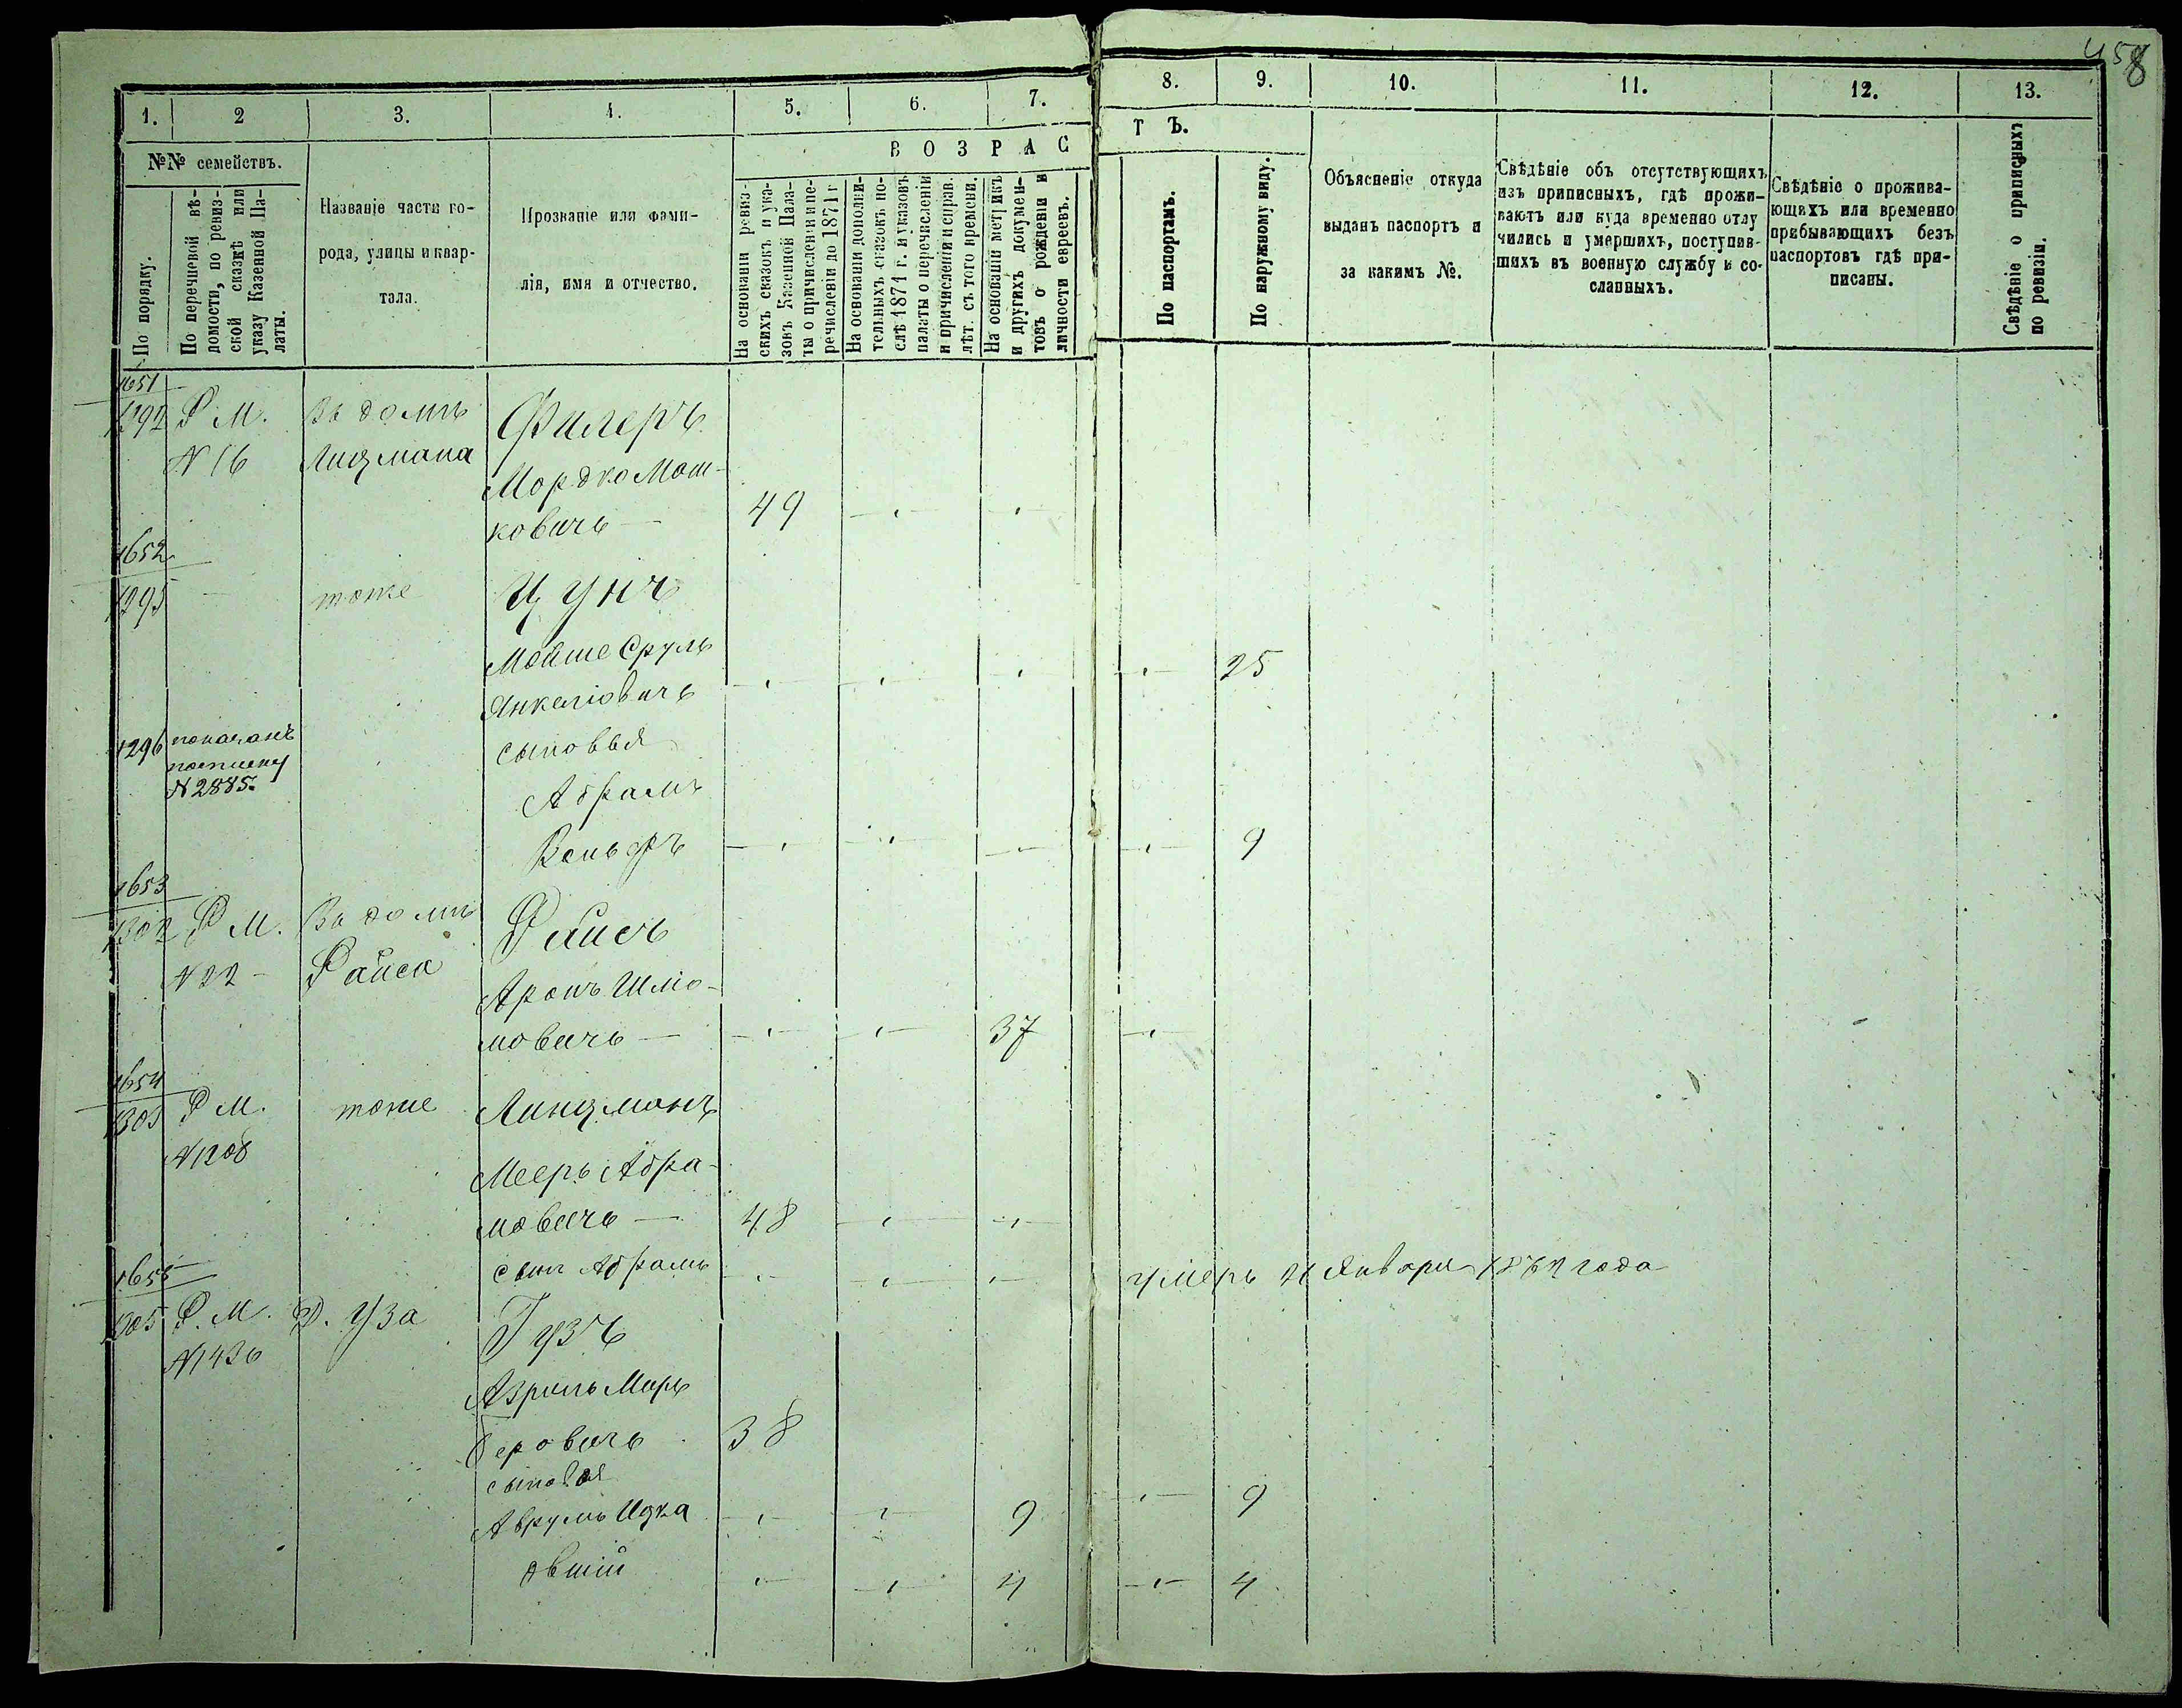 458
1. 2 3. 4. 5. 6. 7. 8. 9. 10. 11. 12. 13.
№№ семействъ.
По порядку.
По перечневой вѣ-
домости, по ревиз-
ской сказкѣ или
указу Казенной Па-
латы.
Названіе части го-
рода, улицы и квар-
тала.
Прозваніе или фами-
лія, имя и отчество.
ВОЗРАСТЪ.
На основаніи ревиз-
скихъ сказокъ и ука-
зовъ Казенной Пала-
ты о причисленіи и пе-
речисленіи до 1871 г
На основаніи дополни-
тельныхъ сказокъ по-
слѣ 1871 г. и указовъ
палаты о перечисленіи
и причисленіи и справ.
лѣт. съ того времени.
На основаніи метрикъ
и другихъ докумен-
товъ о рожденіи и
личности евреевъ.
По паспортамъ.
По наружному виду.
Объясненіе откуда
выданъ паспортъ и
за какимъ №.
Свѣдѣніе объ отсутствующихъ
изъ приписныхъ, гдѣ прожи-
ваютъ или куда временно отлу
чились и умершихъ, поступив-
шихъ въ военную службу и со-
сланныхъ.
Свѣдѣніе о прожива-
ющихъ или временно
пребывающихъ безъ
паспортовъ гдѣ при-
писаны.
Свѣдѣніе о приписныхъ
по ревизіи.
1651
1292 Р М. Въ домѣ Филеръ
N 16 Лицмана
Мордко Мош-
ковичъ — 49
1652
1295 — тоже Цунъ
Мойше Сруль
Янкеліовичъ 25
1296 показанъ
N 2885. сыновья
Абрамъ
Вольфъ 9
1653
1302 Р М. Въ домѣ Райсъ
N 22 — Райса
Аронъ Шліо-
мовичъ — 37
1654
1303 Р М. тоже Линцманъ
N 1208
Мееръ Абра-
мовичъ — 48
сынъ Абрамъ умеръ 21 Января 1867 года
1655
1305 Р. М. Д. Уза Гузъ
N 1436
Азриль Меръ
Беровичъ 38
сыновья
Аврумъ Ицка 9 9
Овшій 4 4